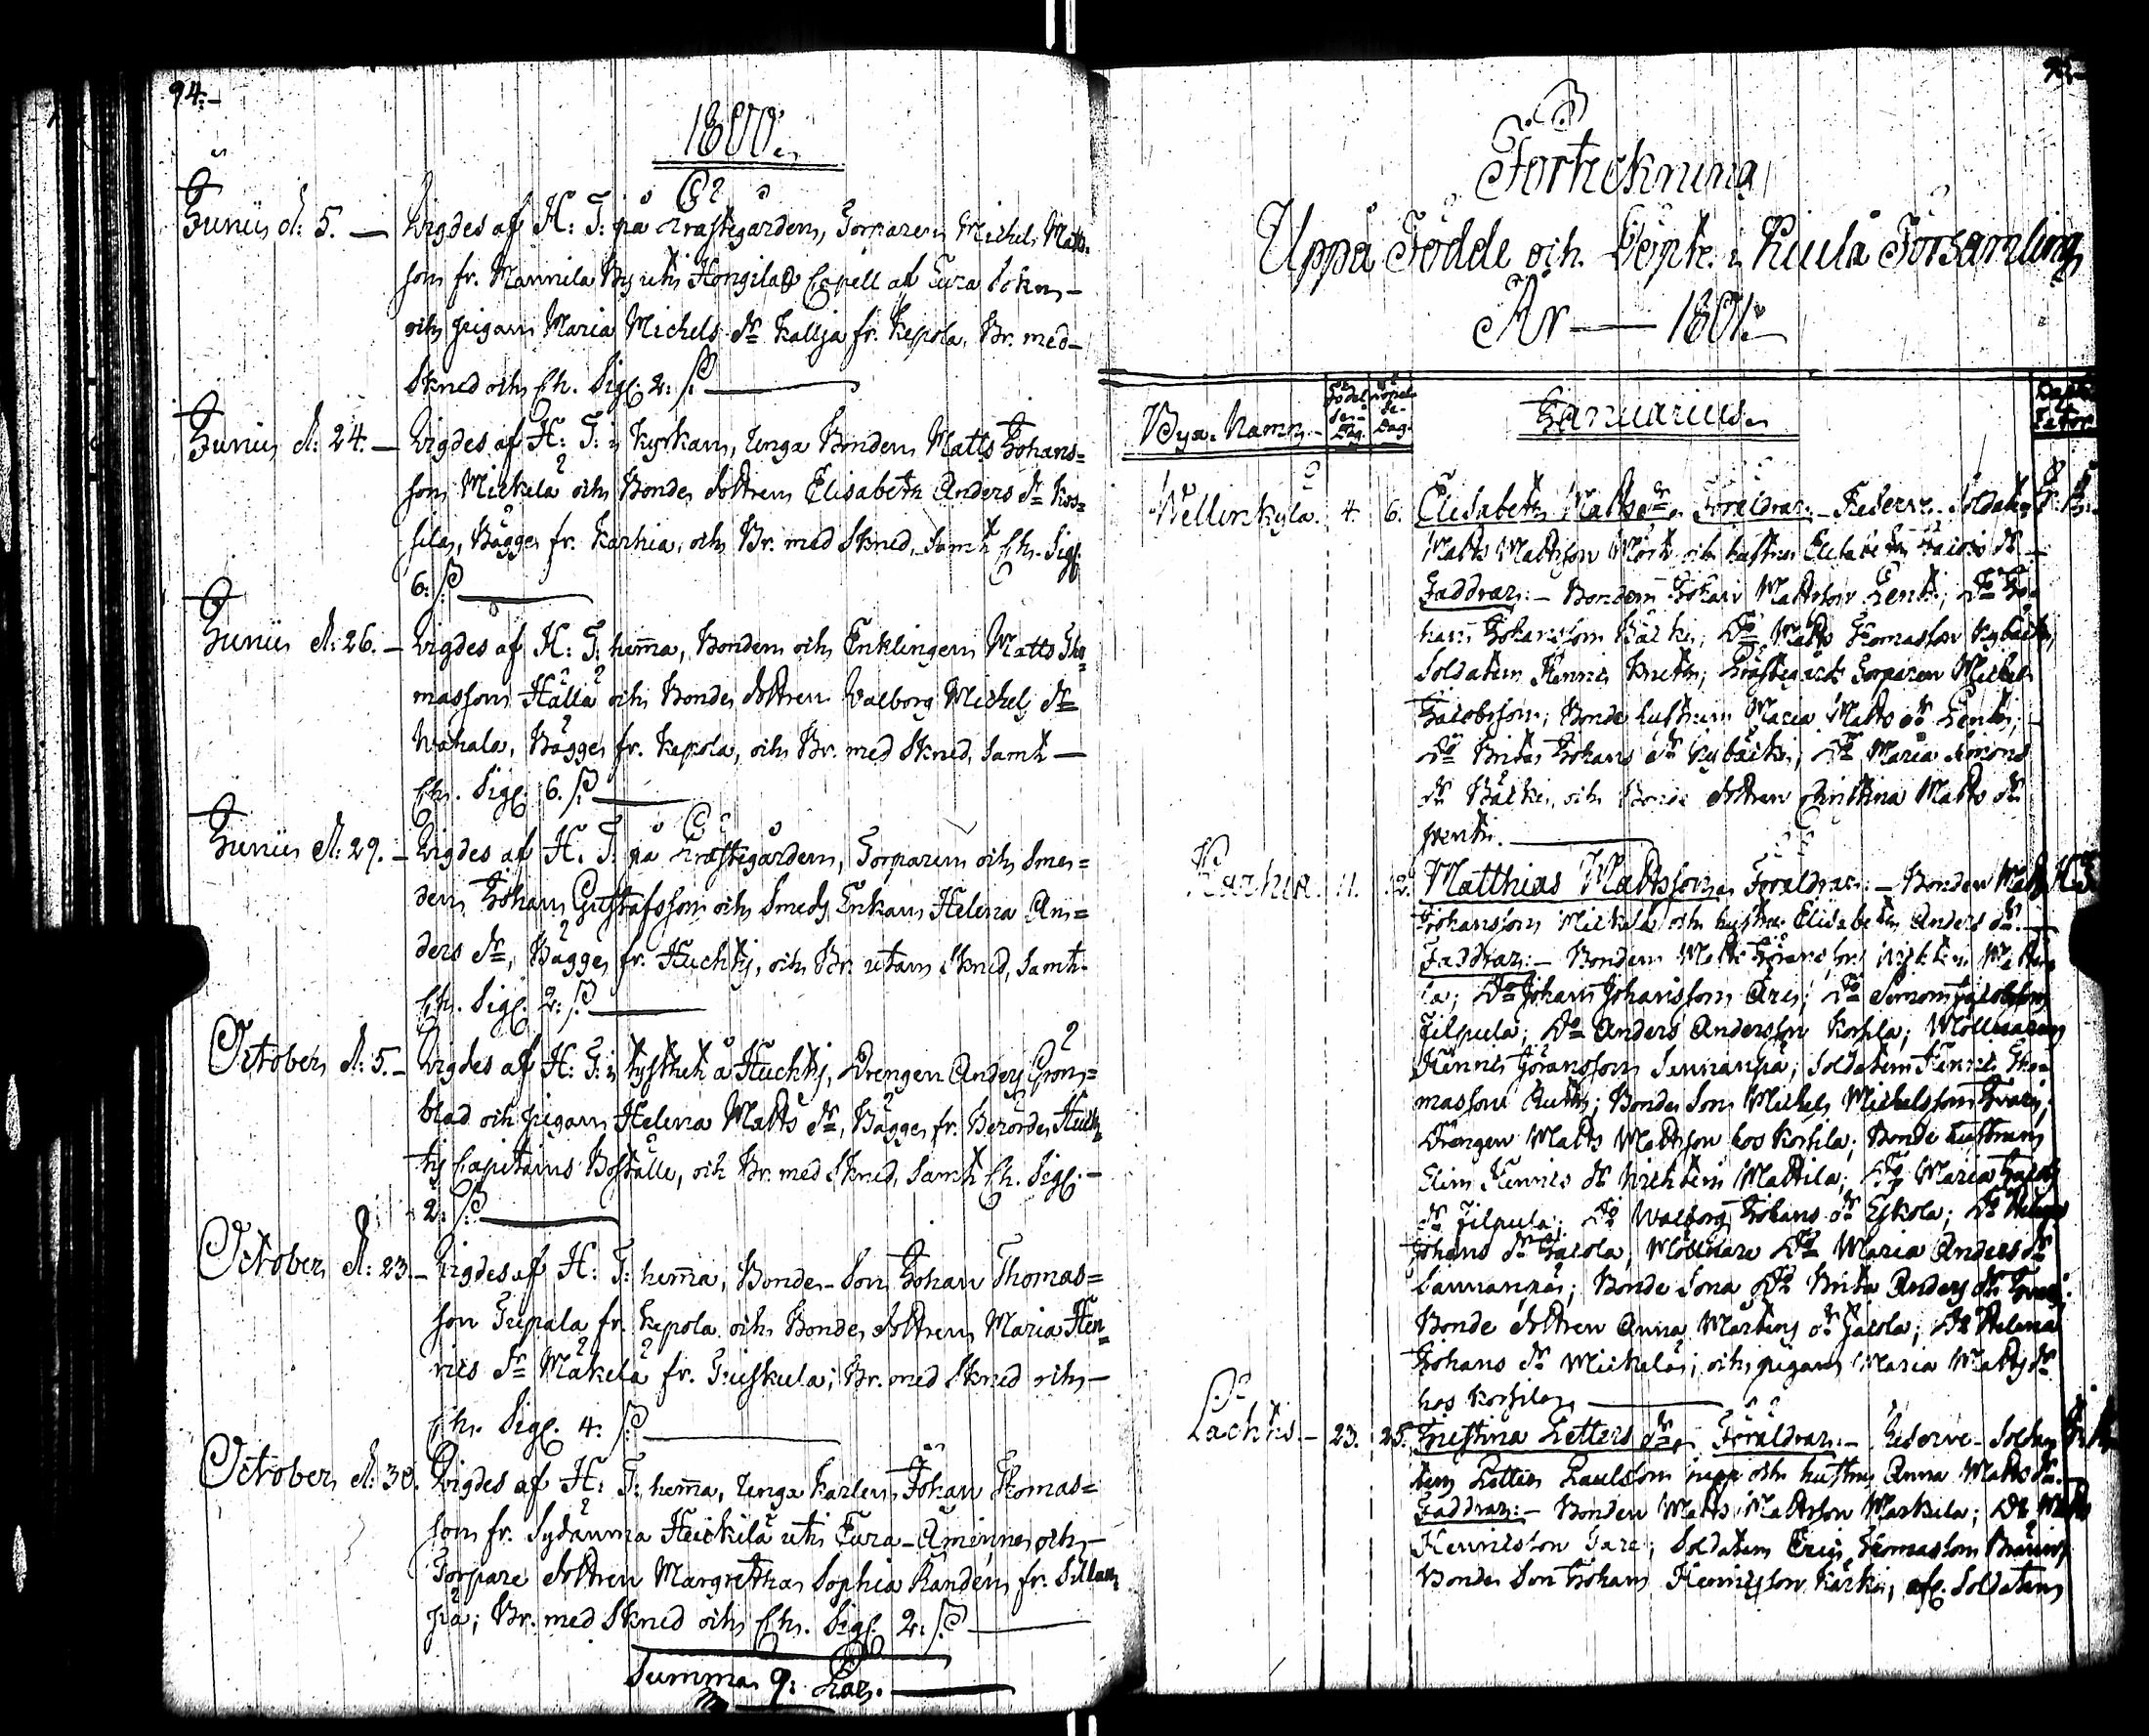 94.-
1800.
Junii d. 5. — Vigdes af H: T: på Prästegården, Torparen Michel Matts-
son fr. Mannila By uti Hongilax Capell af Eura Sokn, -
och pigan Maria Michels dr Kallja fr. Kepola, Br. med -
Skred och Ch. Sigl. 2: ſ. —
Junii d: 24. — Vigdes af H: T: i Kyrkan, Unga Bonden Matts Johans=
son Mickilä och Bonde dottren Elisabeth Anders dr Kor=
sila, Bägge fr. Karhia, och Br. med Skred, samt Ch. Sigl.
6: ſ. —
Junii d: 26. — Vigdes af H: T: hemma, Bonden och Enklingen Matts Tho=
masson Hällä och Bonde dottren Valborg Michels dr
Wähälä, Bägge fr. Kepola, och Br. med Skred, samt —
Ch. Sigl. 6. ſ. —
Junii d: 29. — Vigdes af H. T: på Prästegården, Torparen och Sme=
den Johan Gustafsson och Smeds Enkan Helena An=
ders dr, Bägge fr. Huchtis, och Br. utan Skred, samt
Ch. Sigl. 2: ſ. —
October d: 5. — Vigdes af H: T: i tysthet å Huchtis, Drengen Anders Grön=
blad och pigan Helena Matts dr, Bägge fr. Berörde Huch=
tis Capitains Boställe, och Br. med Skred, samt Ch. Sigl. -
2: ſ. —
October d: 23. — Vigdes af H: T: hemma, Bonde-Son Johan Thomas=
son Tupala fr. Kepola och Bonde dottren Maria Hen=
rics dr Mäkelä fr. Tuiskula; Br. med Skred och —
Ch. Sigl. 4: ſ. —
October d: 30. Vigdes af H: T: hemma, Unga Karlen Johan Thomas=
son fr. Sydänma Heickilä uti Eura-Åminne och -
Torpare dottren Margretha Sophia Randen fr. Sillan-
pä; Br. med Skred och Ch. Sigl. 2: ſ. —
Summa 9: Par. —
Förtekning
Uppå Födde och Döpte i Kiula Församling
År — 1801.
Bya-Namn.
Födel-
se-
Dag.
Döpel-
se-
Dag.
Januarius.
Wellinkylä. 4. 6. Elisabeth Matts dr. Föräldrar. - Reserve-Soldaten
Matts Mattsson Mört och hustrun Elisabeth Jacobs dr. —
Faddrar: - Bonden Johan Mattsson Penti; Do Jo-
han Johansson Bäcki; Do Matts Thomasson Kybäcki,
Soldaten Henric Knekt; Prästegårds Torparen Michel
Jacobsson; Bonde hustrun Maria Matts dr Penti; -
Do Brita Johans dr Kybäcki; Do Maria Simons
dr Bäcki, och Bonde dottren Christina Matts dr
Penti. —
Karhia. 11. 12. Matthias Mattsson. Föräldrar: - Bonden Matts H. T.
Johansson Mickilä och hustrun Elisabeth Anders dr. —
Faddrar: - Bonden Matts Göransson Wichtein Matti-
la; Do Johan Johansson Äri; Do Simon Jacobsson
Filpula; Do Anders Andersson Korsila; Möllnaren
Henric Göransson Sannanpä; Soldaten Henric Tho-
masson Rutk; Bonde Son Michel Michelsson Tvari;
Drengen Matts Mattsson hos Korsila; Bonde hustrun
Elin Henrics dr Wichtein Mattila; Do Maria Jacobs
dr Filpula; Do Walborg Johans dr Eskola; Do Helena
Johans dr Jacola; Möllnare Do Maria Anders dr
Sannanpä; Bonde Sona Do Brita Anders dr Tvari;
Bonde dottren Anna Mårtens dr Jacola; Do Helena
Johans dr Mickilä; och pigan Maria Matts dr
hos Korsila. —
Lachtis. — 23. 25. Christina Petters dr. Föräldrar: - Reserve-Solda-
ten Petter Paulsson Supp och hustru Anna Matts dr.
Faddrar: - Bonden Matts Mattsson Markula; Do Matts
Henricsson Jare; Soldaten Eric Thomasson Bränn,
Bonde Son Johan Henricsson Kärki, afl. Soldatens